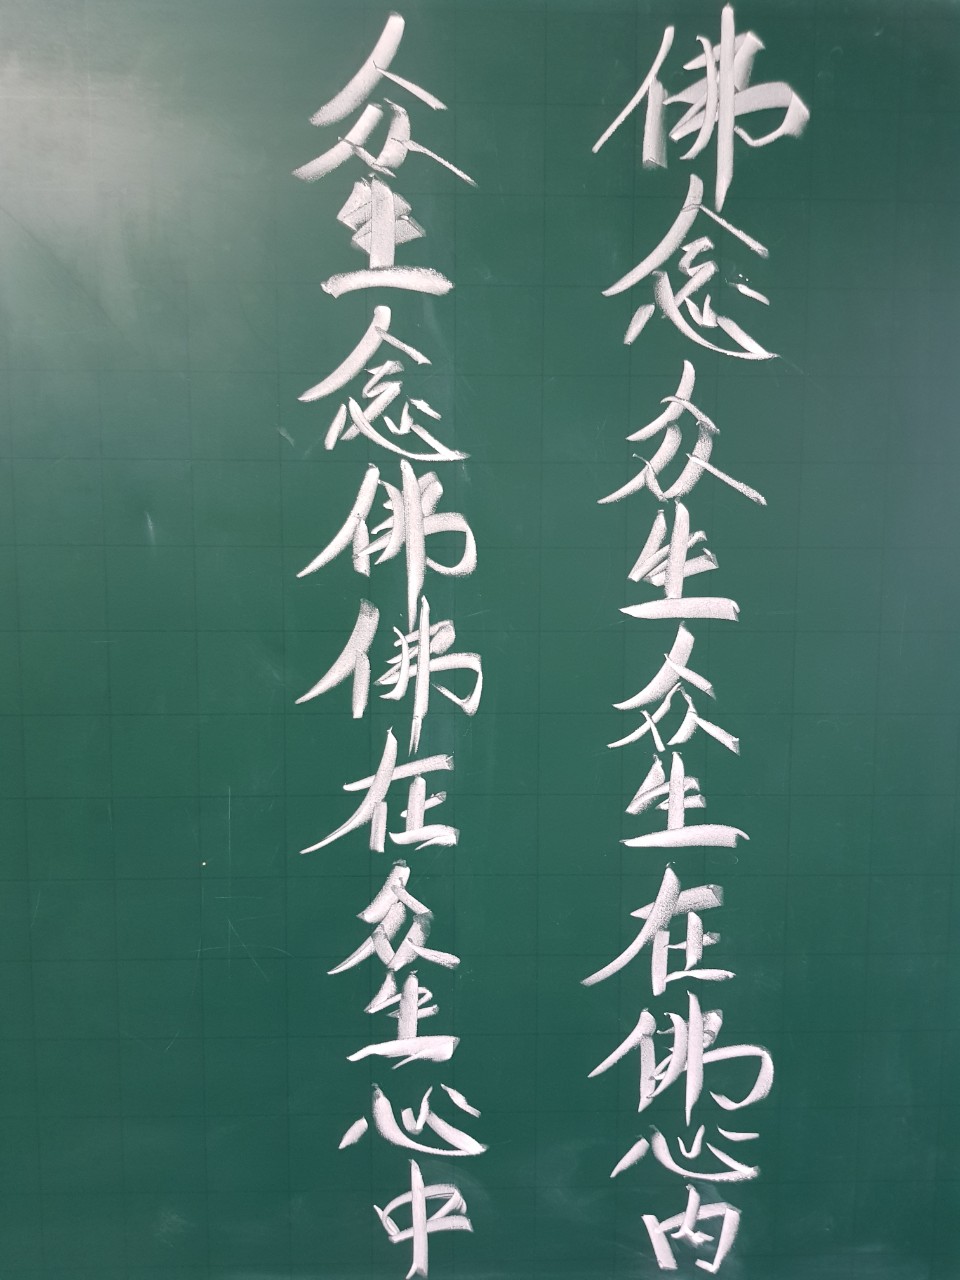 佛念众生众生在佛心内
众生念佛佛在众生心中